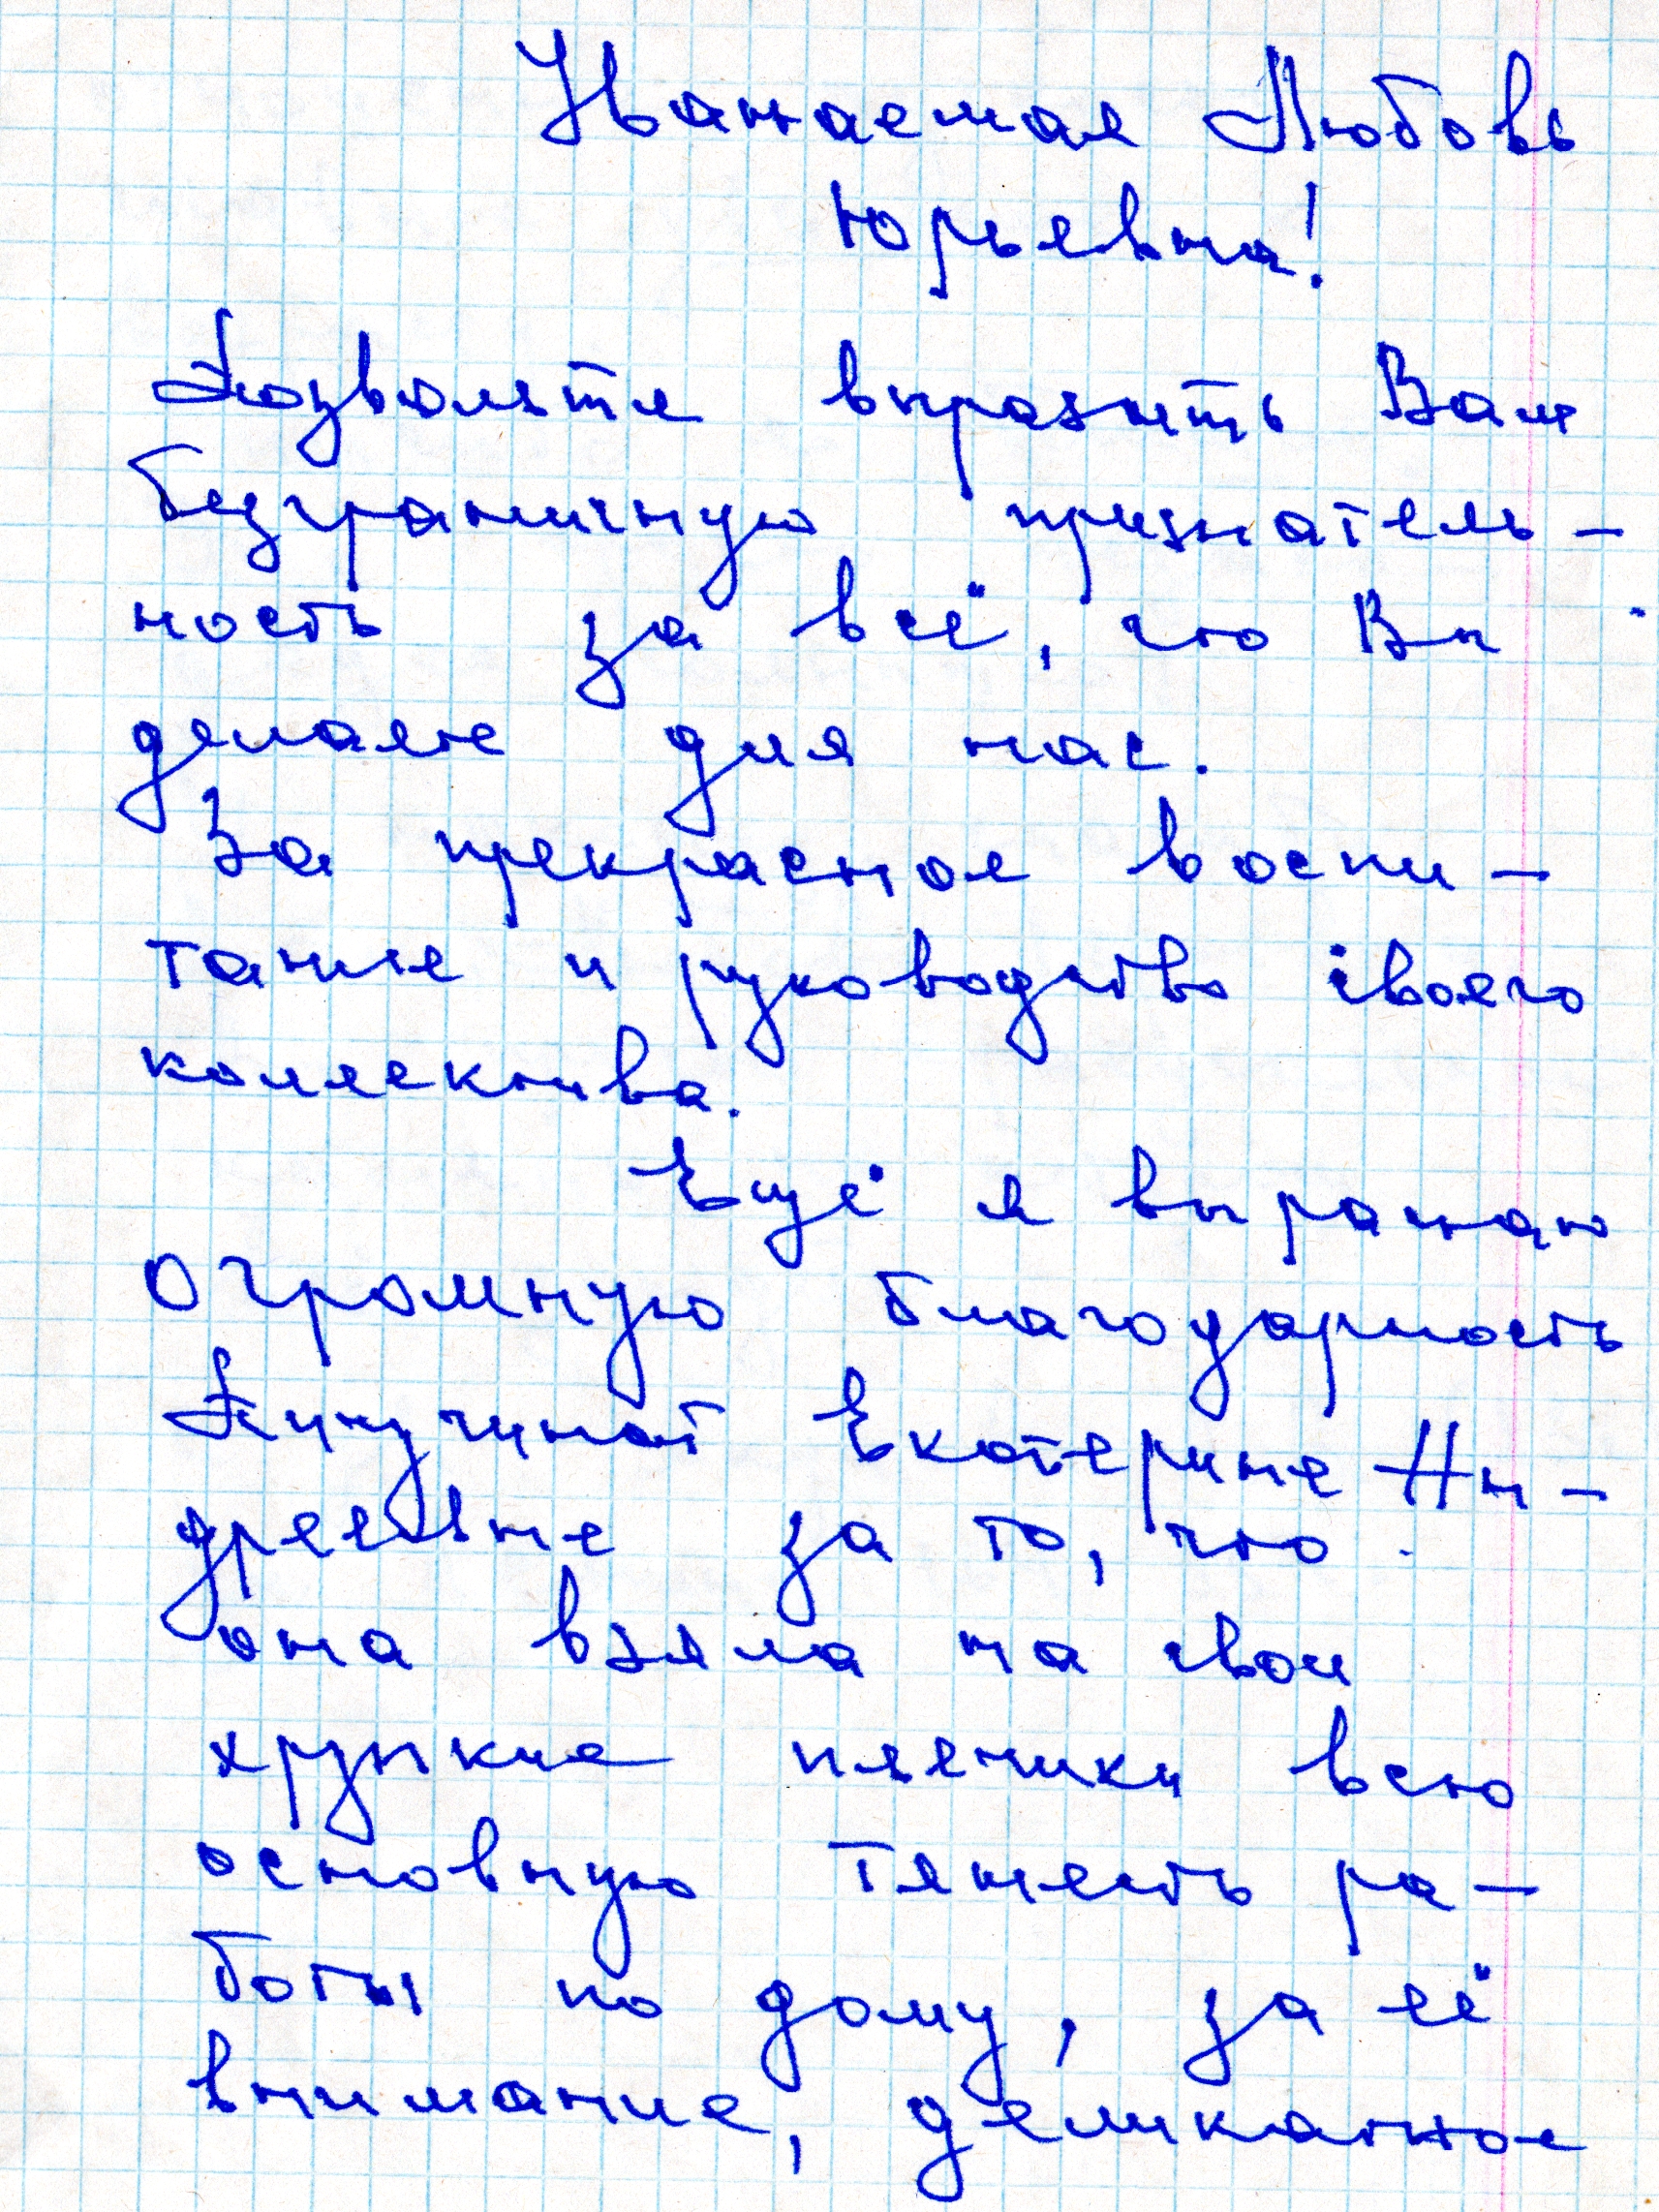 Уважаемая Любовь
Юрьевна!
Позвольте выразить Вам
безграничную признатель-
ность за всё, что Вы
делаете для нас.
За прекрасное воспи-
тание и руководство своего
коллектива.
Ещё я выражаю
огромную благодарность
Екатерине Ан-
дреевне за то, что
она взяла на свои
хрупкие плечики всю
основную тяжесть ра-
боты по дому, за её
внимание, деликатное